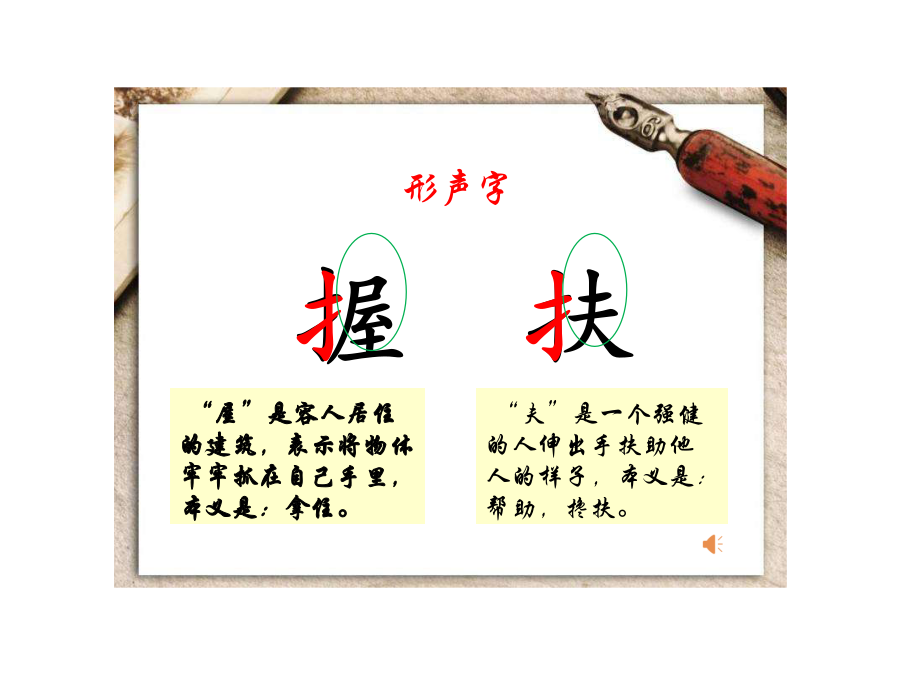 形声字
握 扶
“屋”是容人居住
的建筑，表示将物体
牢牢抓在自己手里，
本义是：拿住。
“夫”是一个强健
的人伸出手扶助他
人的样子，本义是：
帮助，搀扶。